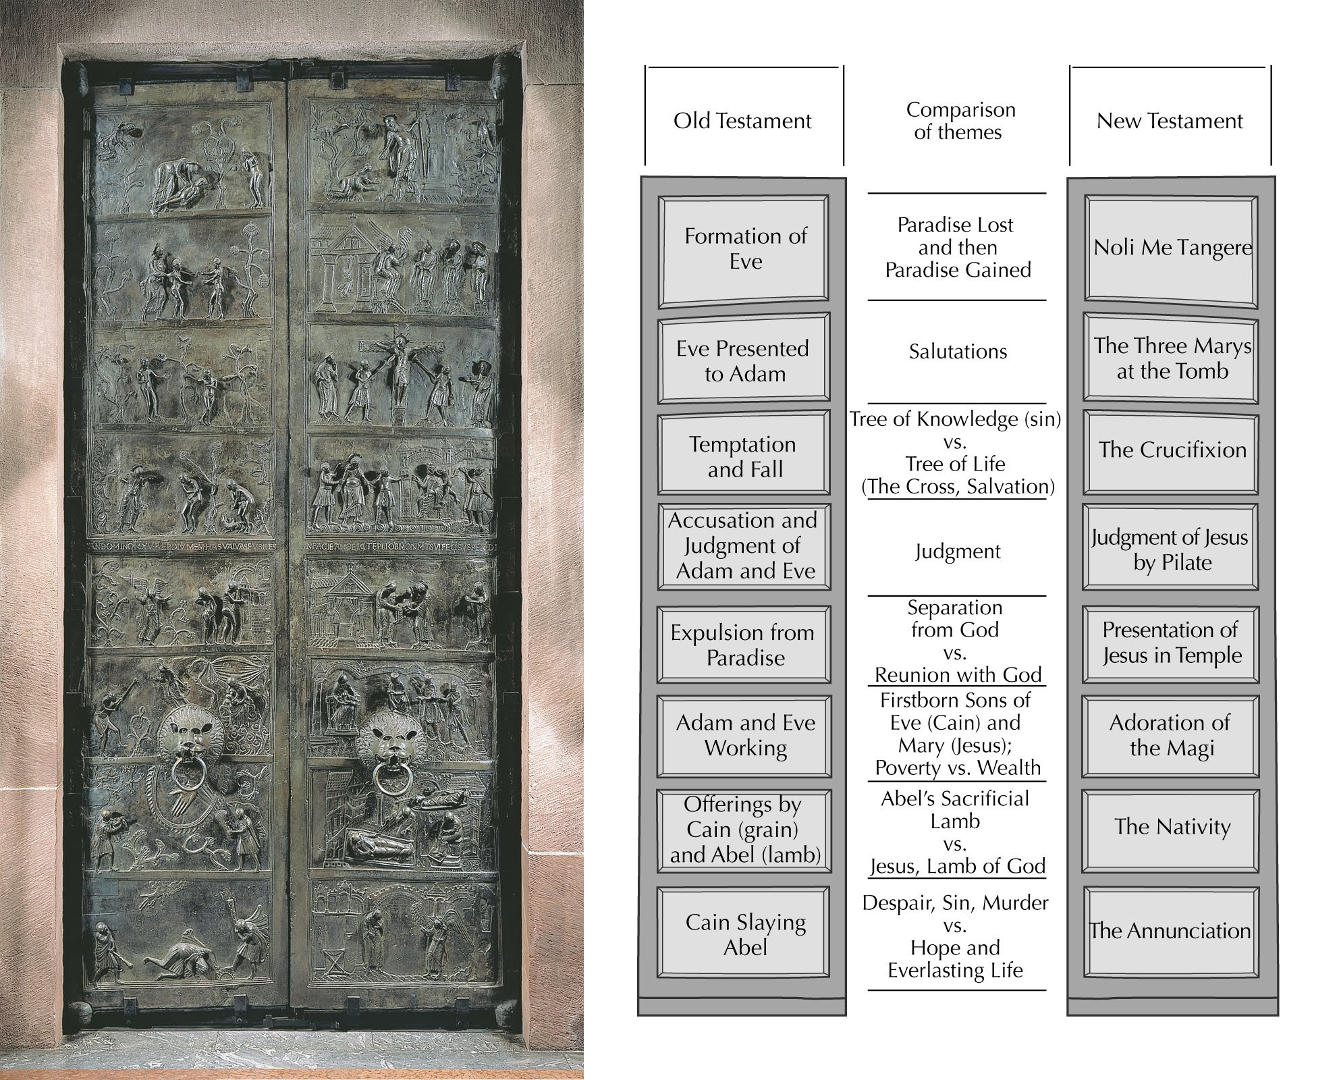 Old Testament
Comparison
of themes
New Testament
Formation of
Eve
Paradise Lost
and then
Paradise Gained
Noli Me Tangere
Eve Presented
to Adam
Salutations
The Three Marys
at the Tomb
Temptation
and Fall
Tree of Knowledge (sin)
vs.
Tree of Life
(The Cross, Salvation)
The Crucifixion
Accusation and
Judgment of
Adam and Eve
Judgment
Judgment of Jesus
by Pilate
Expulsion from
Paradise
Separation
from God
vs.
Reunion with God
Presentation of
Jesus in Temple
Adam and Eve
Working
Firstborn Sons of
Eve (Cain) and
Mary (Jesus);
Poverty vs. Wealth
Adoration of
the Magi
Offerings by
Cain (grain)
and Abel (lamb)
Abel's Sacrificial
Lamb
vs.
Jesus, Lamb of God
The Nativity
Cain Slaying
Abel
Despair, Sin, Murder
vs.
Hope and
Everlasting Life
The Annunciation